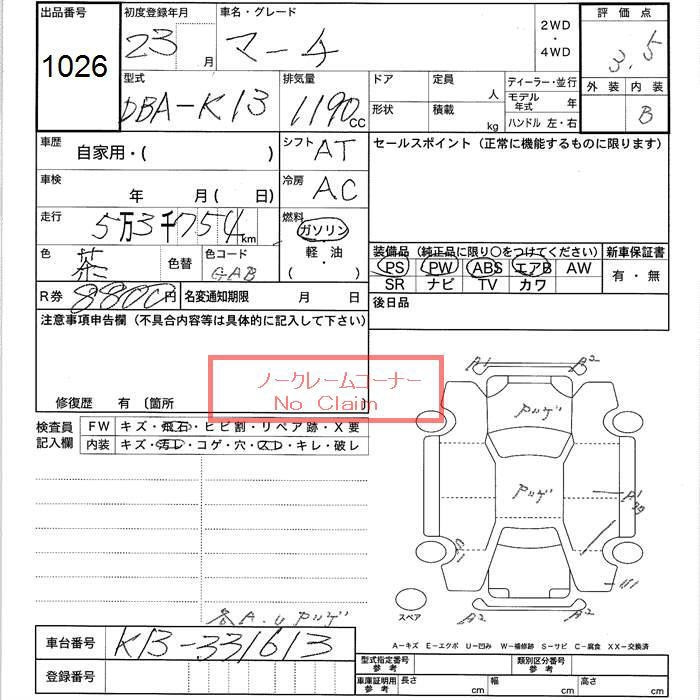 出品番号 初度登録年月 車名・グレード 評価点
1026 23 月 マーチ 2WD ・ 4WD 3.5
型式 排気量 ドア 定員 人 ディーラー・並行 外装 内装
DBA-K13 1190 CC 形状 積載 kg モデル年式 年 B
ハンドル 左・右
車歴 自家用・( ) シフト AT セールスポイント(正常に機能するものに限ります)
車検 年 月( 日) 冷房 AC
走行 5万3千754km 燃料 ガソリン
色 茶 色替 色コード GAB 軽・油 ( ・ )
装備品(純正品に限り○をつけてください) 新車保証書
PS PW ABS エアB AW 有・無
SR ナビ TV カワ
R券 8800円 名変通知期限 月 日 後日品
注意事項申告欄(不具合内容等は具体的に記入して下さい)
ノークレームコーナー
No Claim
修復歴 有〔箇所 〕
検査員記入欄 FW キズ・飛石・ヒビ割・リペア跡・X要
内装 キズ・汚レ・コゲ・穴・スレ・キレ・破レ
A1 A2
アツゲ
アツゲ
A1
スペア A2 A2
各A.Uアツゲ
車台番号 K13-331613
A-キズ E-エクボ U-凹み W-補修跡 S-サビ C-腐食 XX-交換済
登録番号 型式指定番号 参考 類別区分番号 参考
車庫証明用 参考 長さ cm 幅 cm 高さ cm